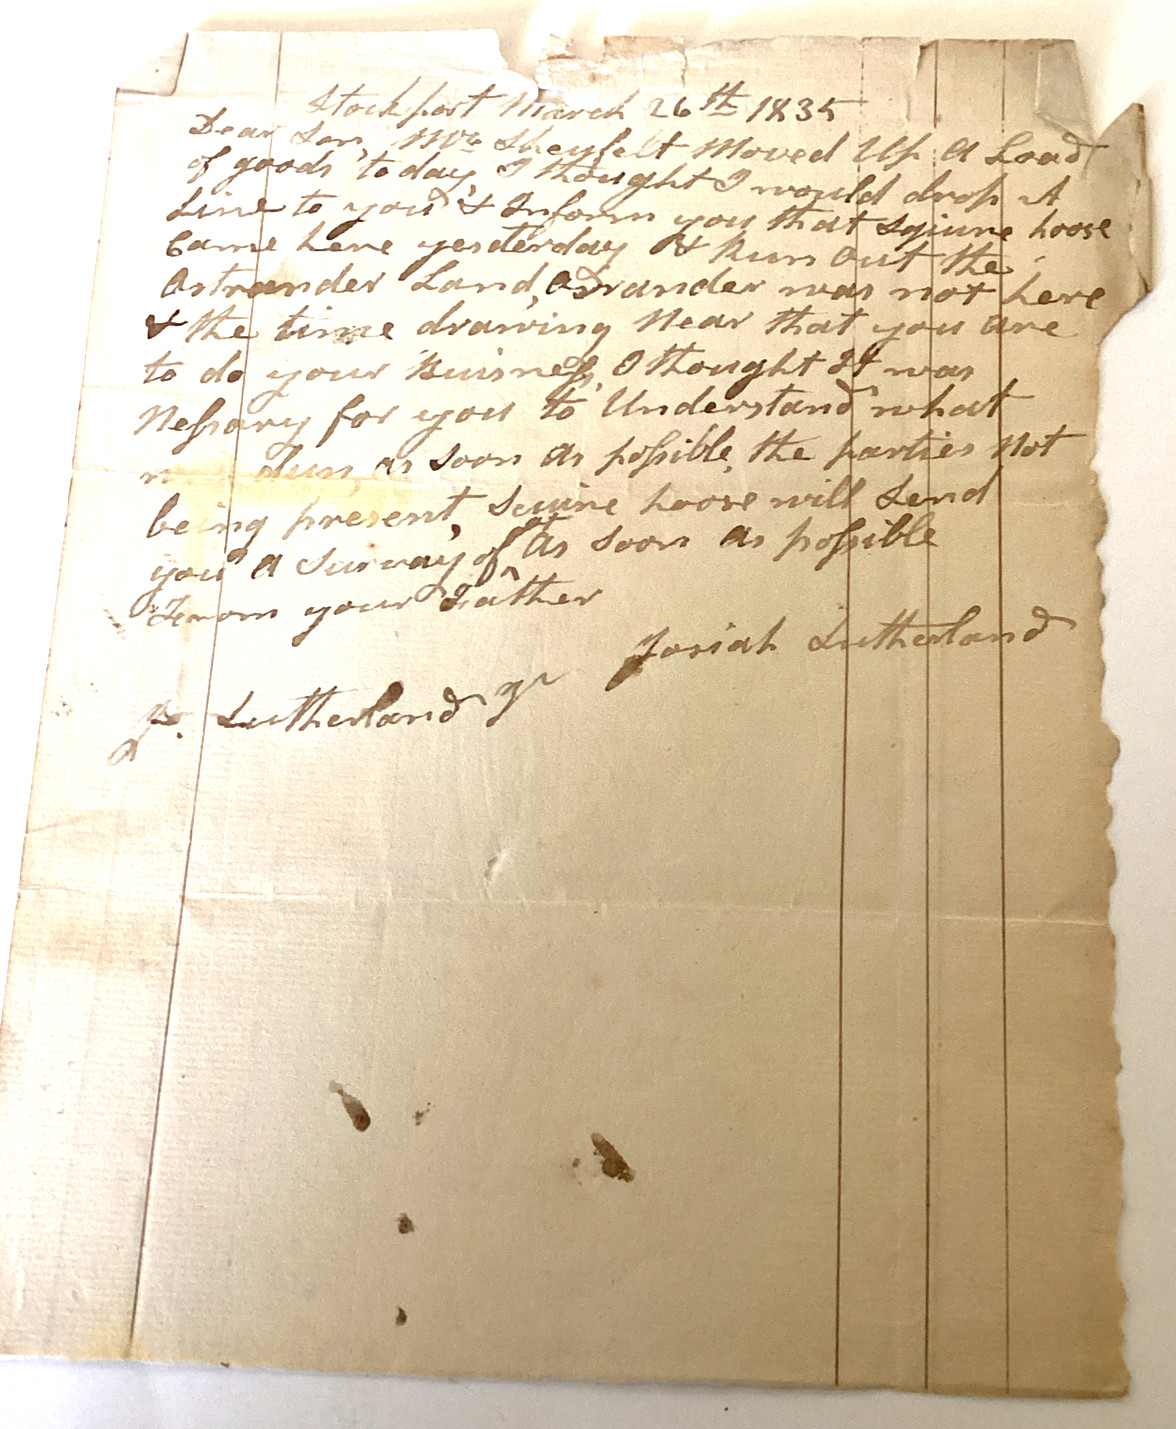 Stockport March 26th 1835
Dear Son, Mr. Sheyfelt Moved Up A Load
of goods to day, I thought I would drop A
Line to you & Inform you that Sqiure hoose
Came here yesterday & Run Out the
Ostrander Land, Ostrander was not here
& the time drawing Near that you are
to do your Buisness, I thought It was
Nessary for you to Understand what
dun, as soon as possible, the parties Not
being present, Squire hoose will Send
you A Survay of As soon as possible
From your Father
Josiah Sutherland
J. Sutherland Jr